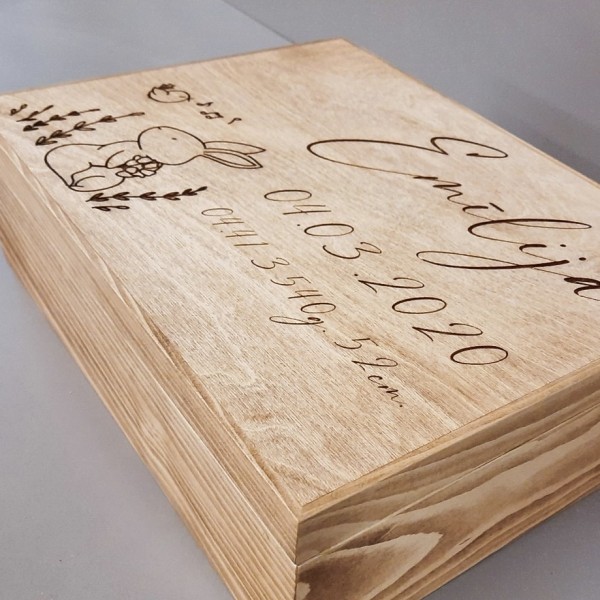 Emīlija
04.03.2020
04:41 3540g. 52cm.